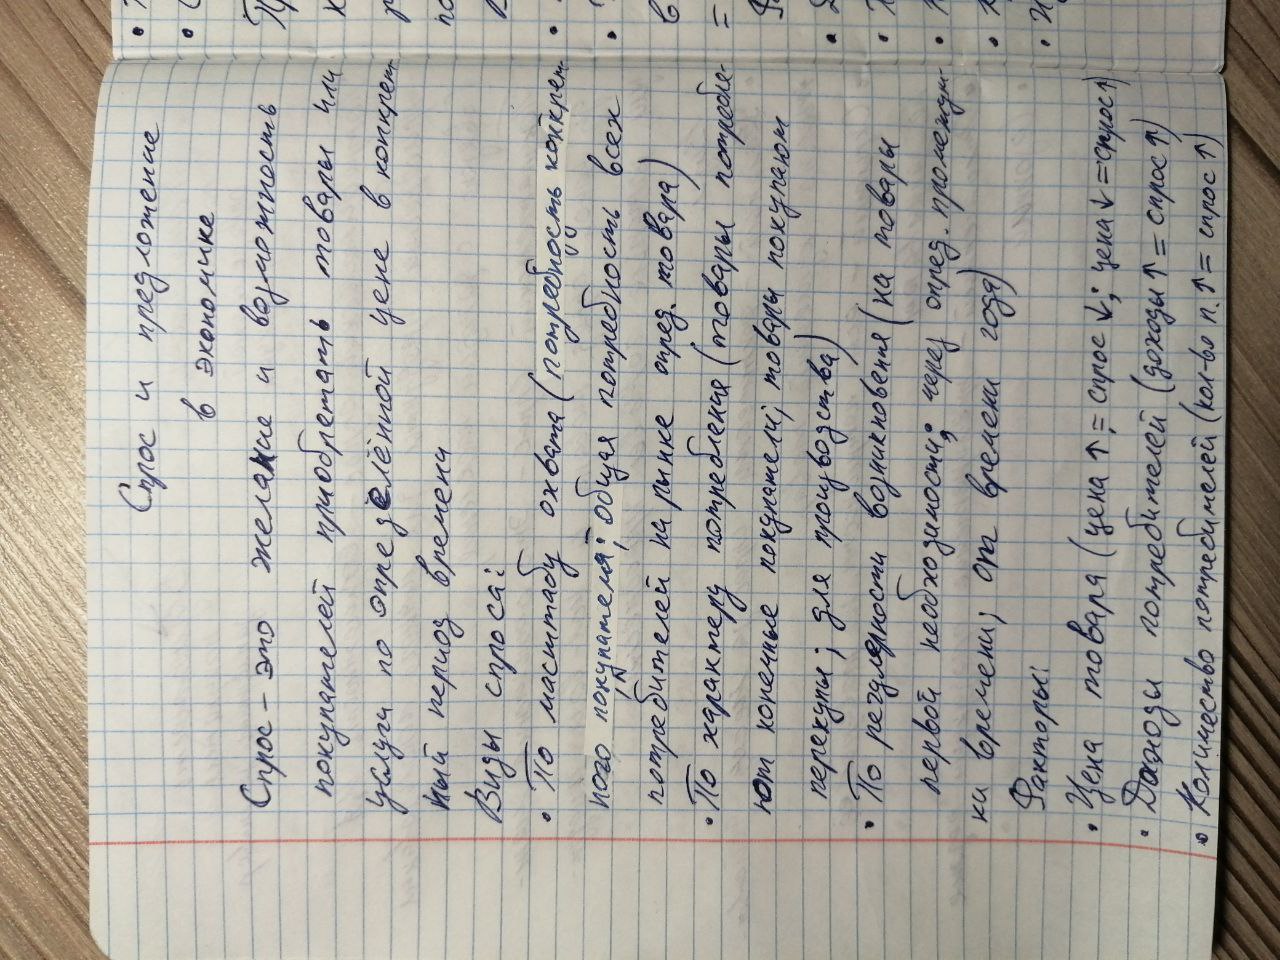 Спрос и предложение
в экономике
Спрос – это желание и возможность
покупателей приобретать товары или
услуги по определённой цене в конкрет-
ный период времени
Виды спроса:
• По масштабу охвата (потребность конкрет-
ного покупателя; общая потребность всех
потребителей на рынке опред. товара)
• По характеру потребления (товары потребля-
ют конечные покупатели; товары покупают
перекупы; для производства)
• По регулярности возникновения (на товары
первой необходимости; через опред. промежут-
ки времени; от времени года)
Факторы:
• Цена товара (цена ↑ = спрос ↓; цена ↓ = спрос ↑)
• Доходы потребителей (доходы ↑ = спрос ↑)
• Количество потребителей (кол-во п. ↑ = спрос ↑)